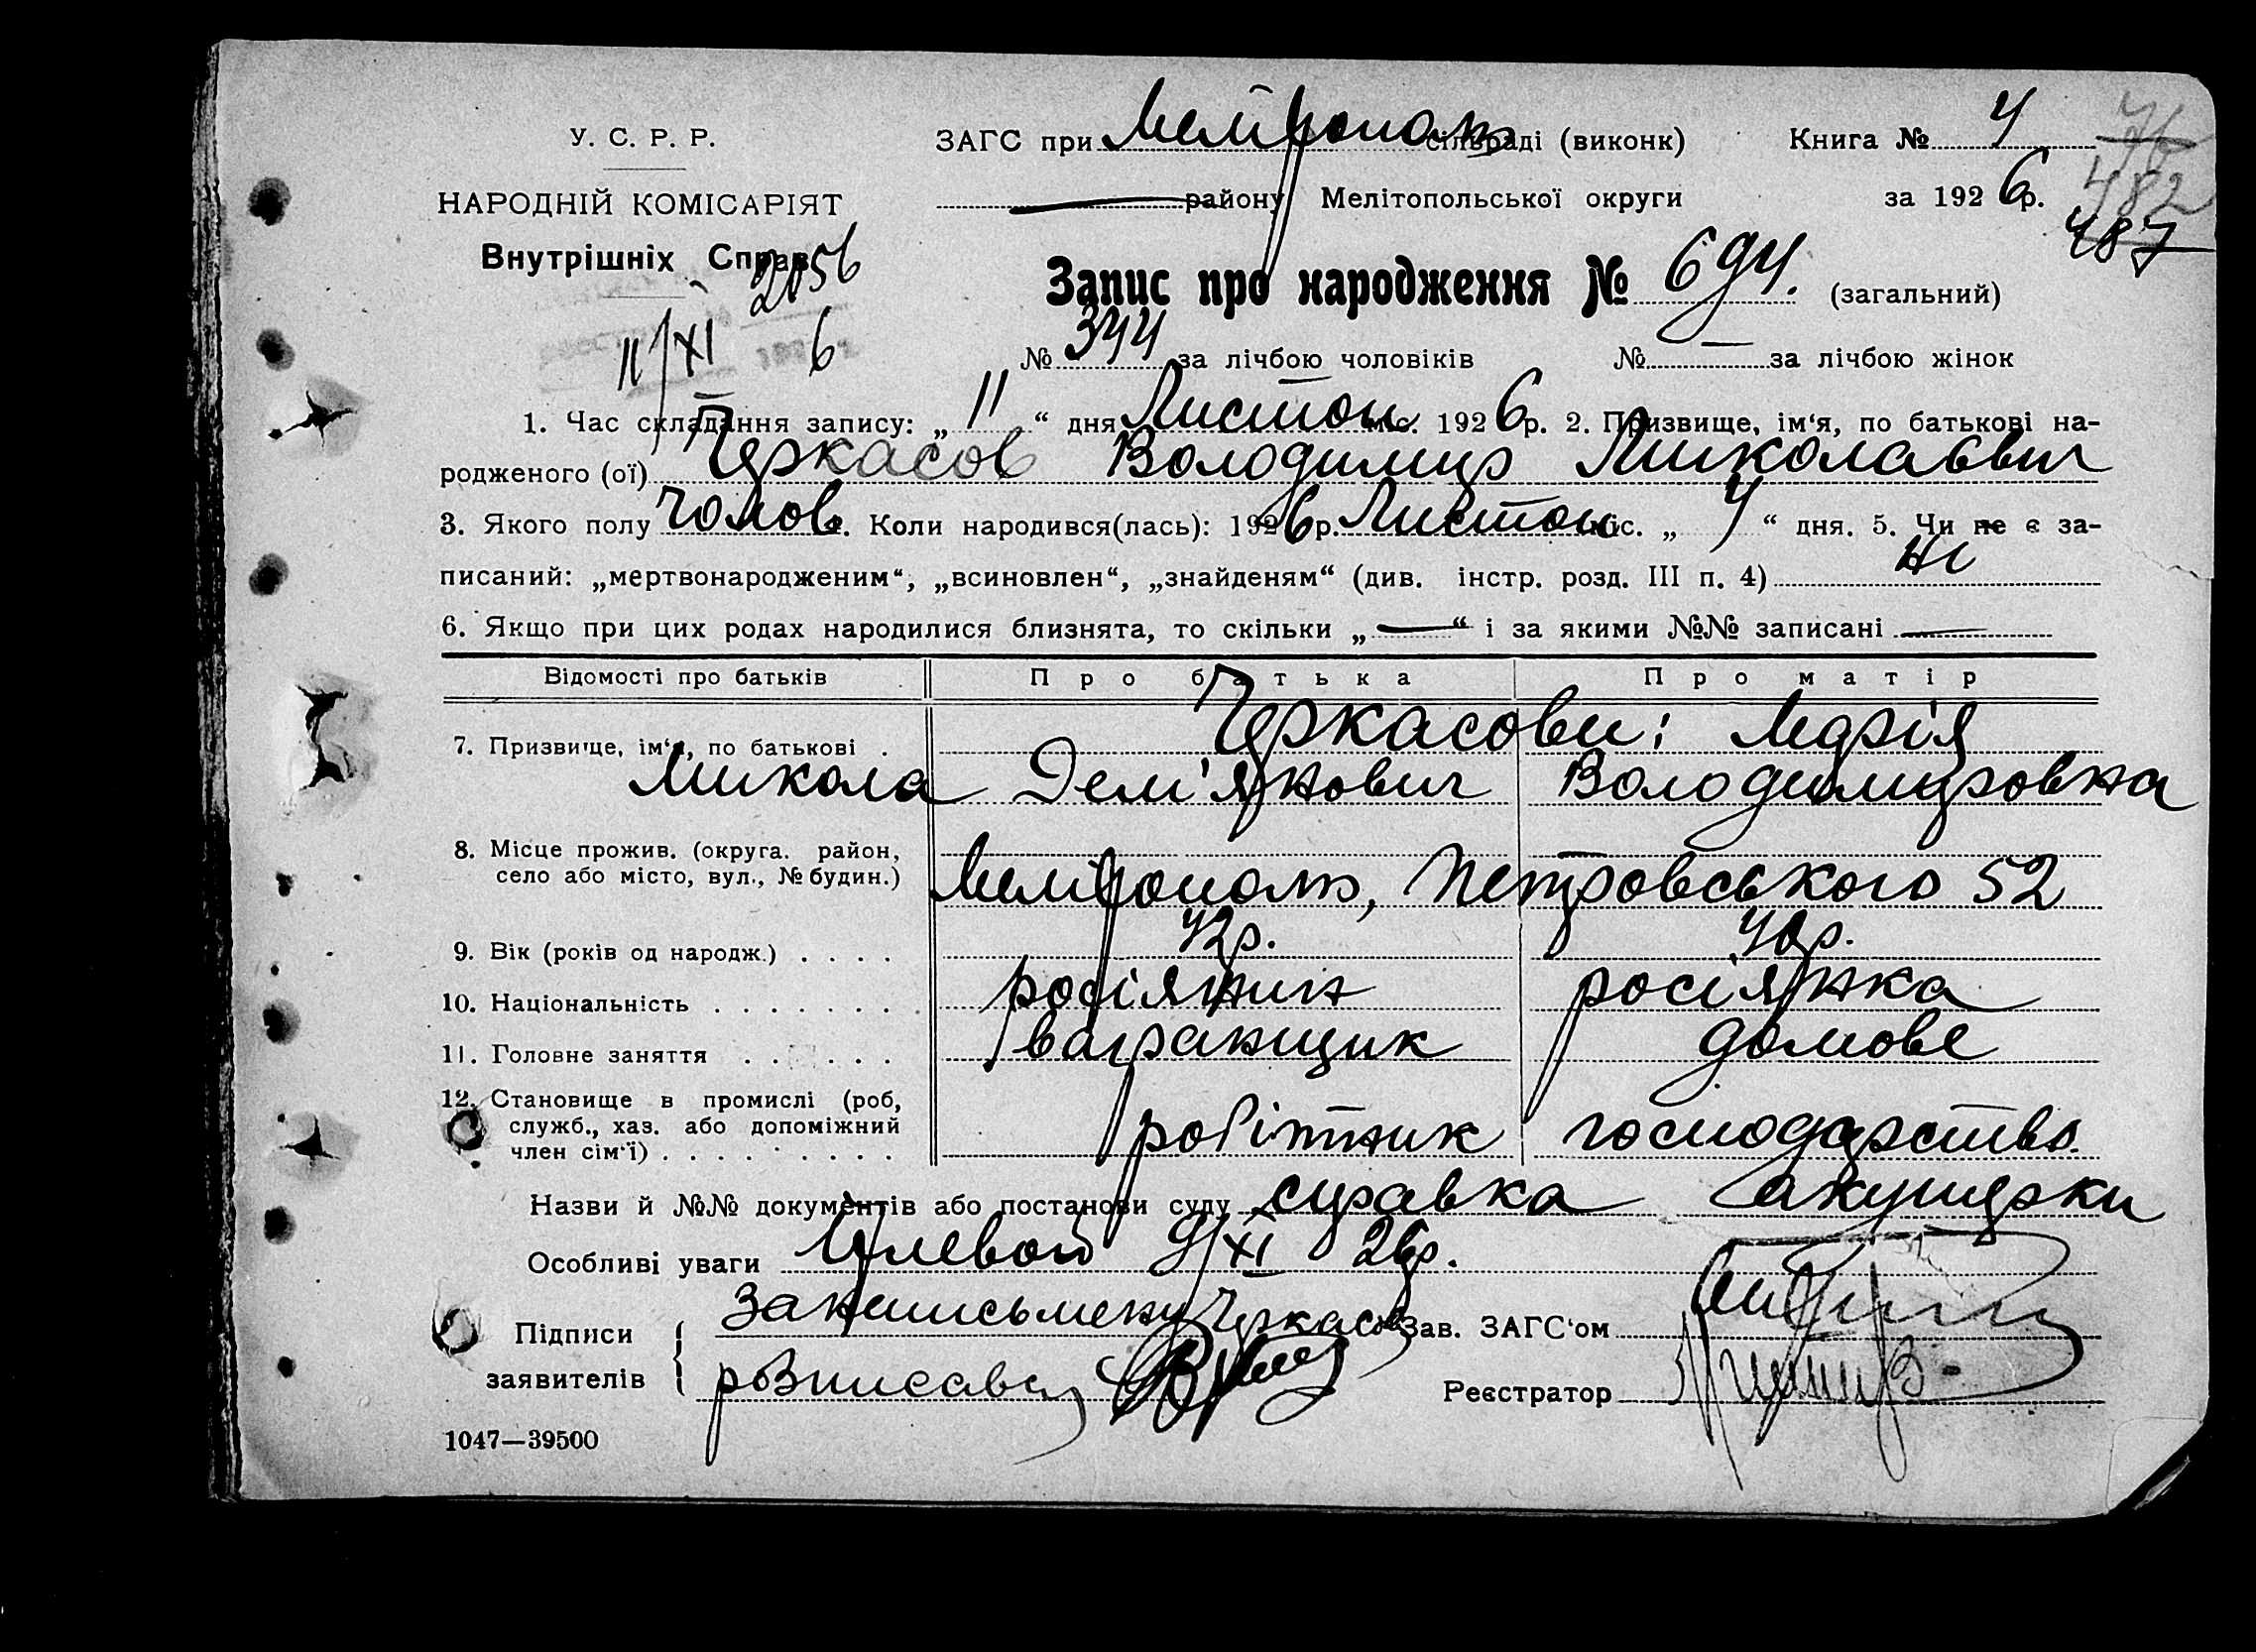 У. С. Р. Р.
ЗАГС при Мелітополь сільраді (виконк) Книга № 4
76
НАРОДНІЙ КОМІСАРІЯТ
району Мелітопольської округи за 1926 р.
482
487
Внутрішніх Справ
2056
Запис про народження № 694. (загальний)
11/XI 6
№ 344 за лічбою чоловіків № — за лічбою жінок
1. Час складання запису: „ 11 “ дня Листоп міс. 1926 р. 2. Призвище, ім‘я, по батькові на-
родженого (ої) Черкасов Володимир Миколаєвич
3. Якого полу чолов. Коли народився(лась): 1926 р. Листоп міс. „ 4 “ дня. 5. Чи не є за-
писаний: „мертвонародженим“, „всиновлен“, „знайденям“ (див. інстр. розд. III п. 4) не
6. Якщо при цих родах народилися близнята, то скільки „ — “ і за якими №№ записані —
Відомості про батьків Про батька Про матір
7. Призвище, ім‘я, по батькові . Черкасови: Марія
Микола Дем'янович Володимировна
8. Місце прожив. (округа. район,
село або місто, вул., № будин.) Мелітополь, Петровського 52
9. Вік (років од народж.) . . . . 42 р. 40 р.
10. Національність . . . . . . . росіянин росіянка
11. Головне заняття . . . . . . вагранщик домове
12. Становище в промислі (роб,
служб., хаз. або допоміжний
член сім‘ї) . . . . . . . . . робітник господарство.
Назви й №№ документів або постанови суду справка акушерки
Особливі уваги 9/XI 26 р.
Підписи
заявителів
Черкасов
розписався
Зав. ЗАГС‘ом
Реєстратор
1047—39500